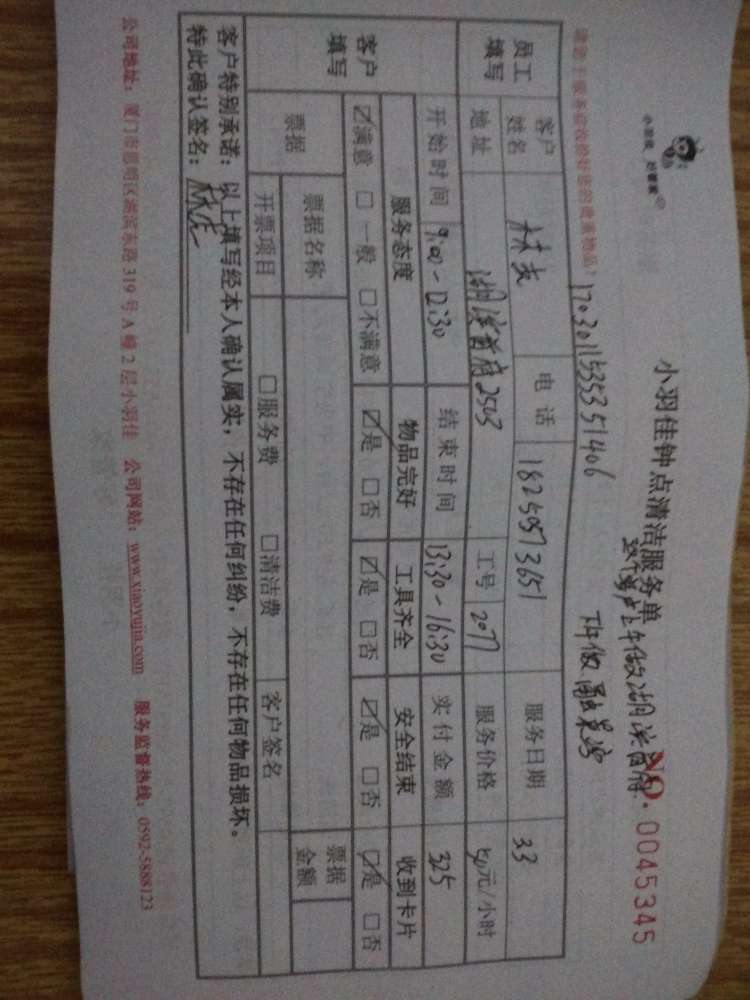 小羽佳钟点清洁服务单
NO. 0045345
17030115335351406
员工填写
客户姓名
林
电话
18250573651
服务日期
3.3
地址
2503
工号
2077
服务价格
50元/小时
开始时间
9:00-12:30
结束时间
13:30-16:30
实付金额
325
客户填写
服务态度
物品完好
工具齐全
安全结束
收到卡片
☑满意 □一般 □不满意
☑是 □否
☑是 □否
☑是 □否
☑是 □否
票据
票据名称
票据金额
开票项目
□服务费 □清洁费
客户签名
客户特别承诺：以上填写经本人确认属实，不存在任何纠纷，不存在任何物品损坏。
特此确认签名：
公司地址：厦门市思明区湖滨东路 319 号 A 幢 2 层小羽佳 公司网站：www.xiaoyujia.com 服务监督热线：0592-5888123